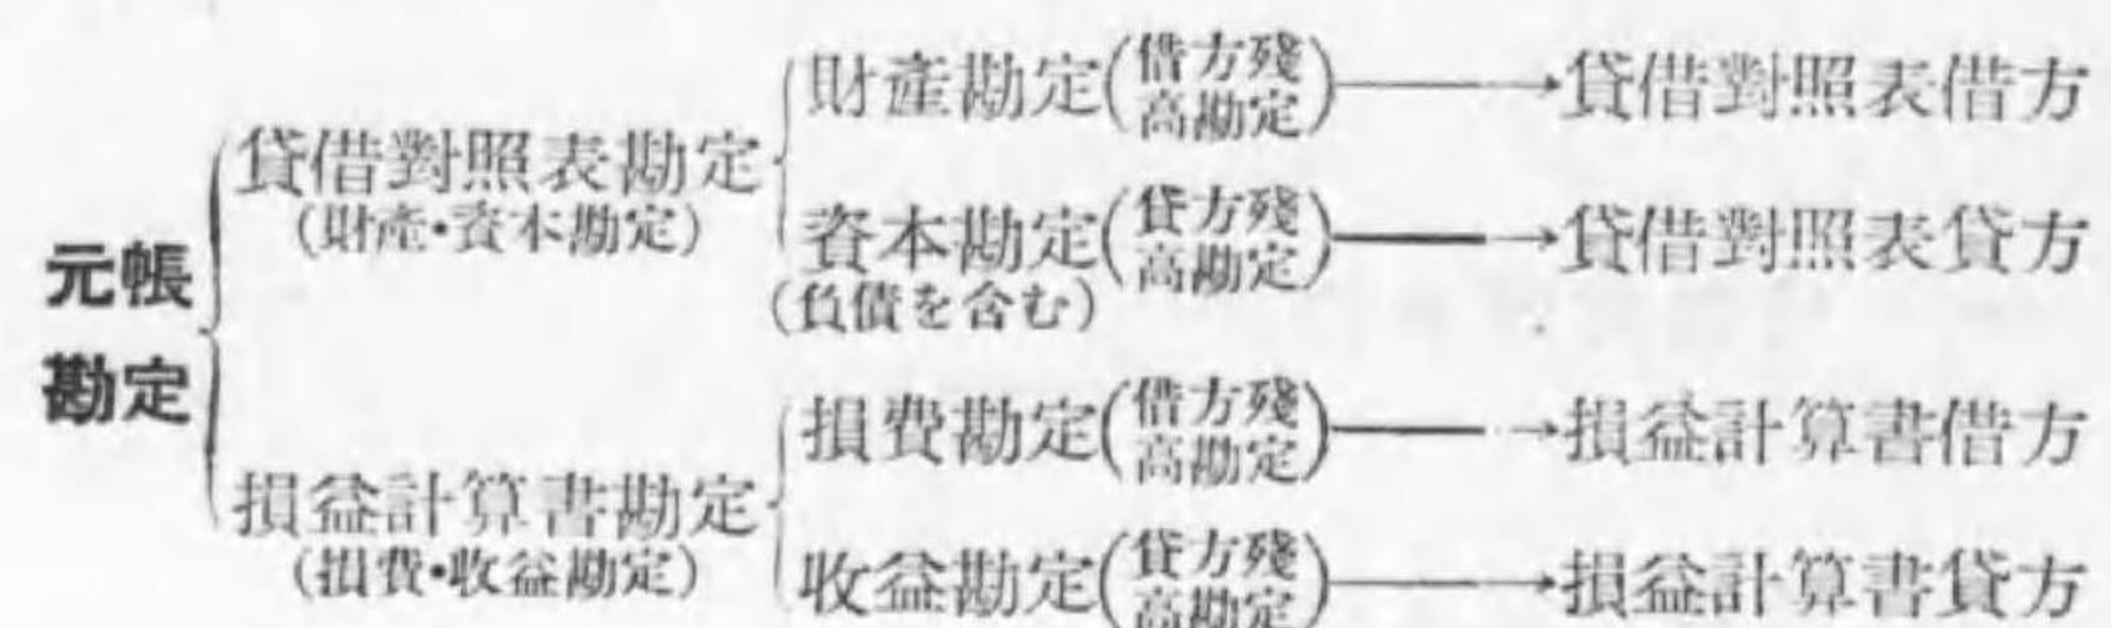 元帳
勘定
貸借對照表勘定
(財產•資本勘定)
財產勘定(借方殘高勘定)→貸借對照表借方
資本勘定(貸方殘高勘定)→貸借對照表貸方
(負債を含む)
損益計算書勘定
(損費•收益勘定)
損費勘定(借方殘高勘定)→損益計算書借方
收益勘定(貸方殘高勘定)→損益計算書貸方